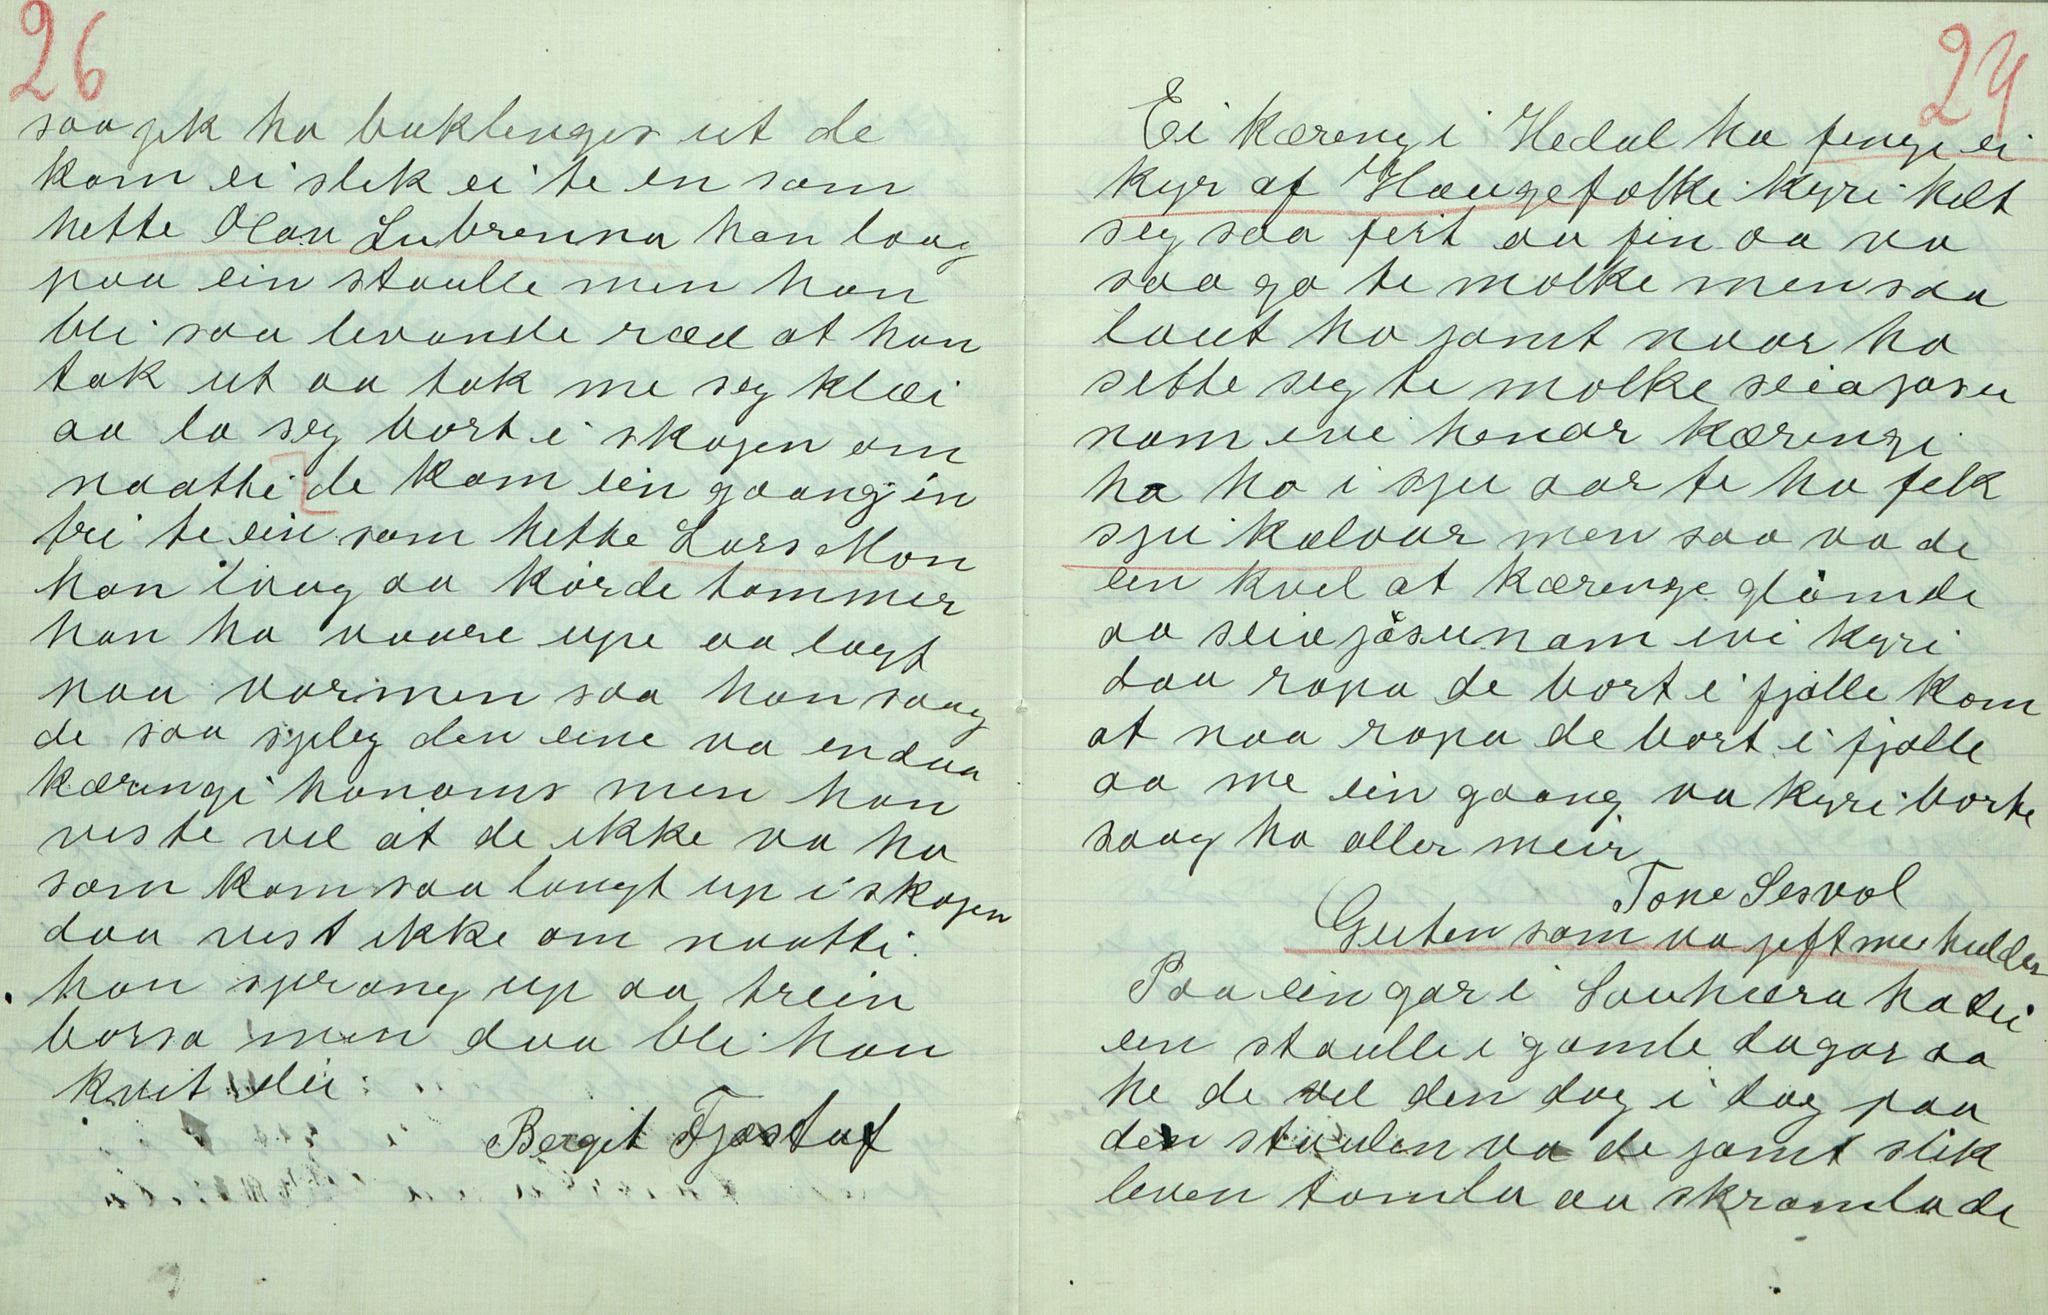 26
saa gek ho baklenges ut de
kom ei slek ei te en som
hette Olav Lubrenna han laag
paa ein staulle men han
bli saa levande ræd at han
tok ut aa tok me seg klæi
aa la seg bort i skogen om
naatti de kom ein gaang in
tri te ein som hette Lars Mon
han laag aa kørde tømmer
han ha vaare upe aa lagt
paa varmen saa han saag
de saa sjpleg den eine va endaa
kæringi honoms men han
viste vel at de ikke va ho
som kom saa langt up i skogen
daa vist ikke om naatti.
han sprang up aa trein
børsa men daa bli han
kvit dei
Bergit Fjøstuf
29
Ei kæreng i Hedal ha fenge ei
kyr af Haugefolke kyri helt
seg saa feit aa fin aa va
saa go te molke men saa
laut ho jamt naar ho
sette seg te molke seia jøsu
nam ivi henar kæringi
ha ho i sju aar te ho fek
sju kalvar men saa va de
ein kvel at kærenge glømde
aa seia jøsunam ivi kyri
daa ropa de bort i fjølle kom
at naa ropa de bort i fjølle
aa me ein gaang va kyri borte
saag ho aller meir
Tone Sesvol
Guten som va jeft me hulder
Paa ein gar i Sauhæra ha dei
ein staulle i gamle dagar aa
he de vel den dag i dag paa
den staulen va de jamt slik
leven tamla aa skramla de